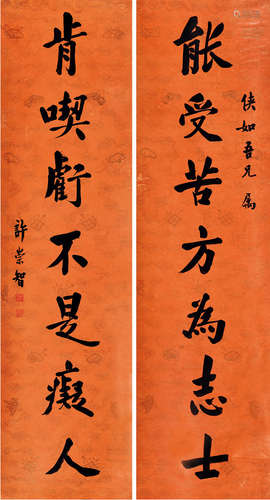 能受苦方為志士
俠如吾兄属
肯喫虧不是癡人
許崇智